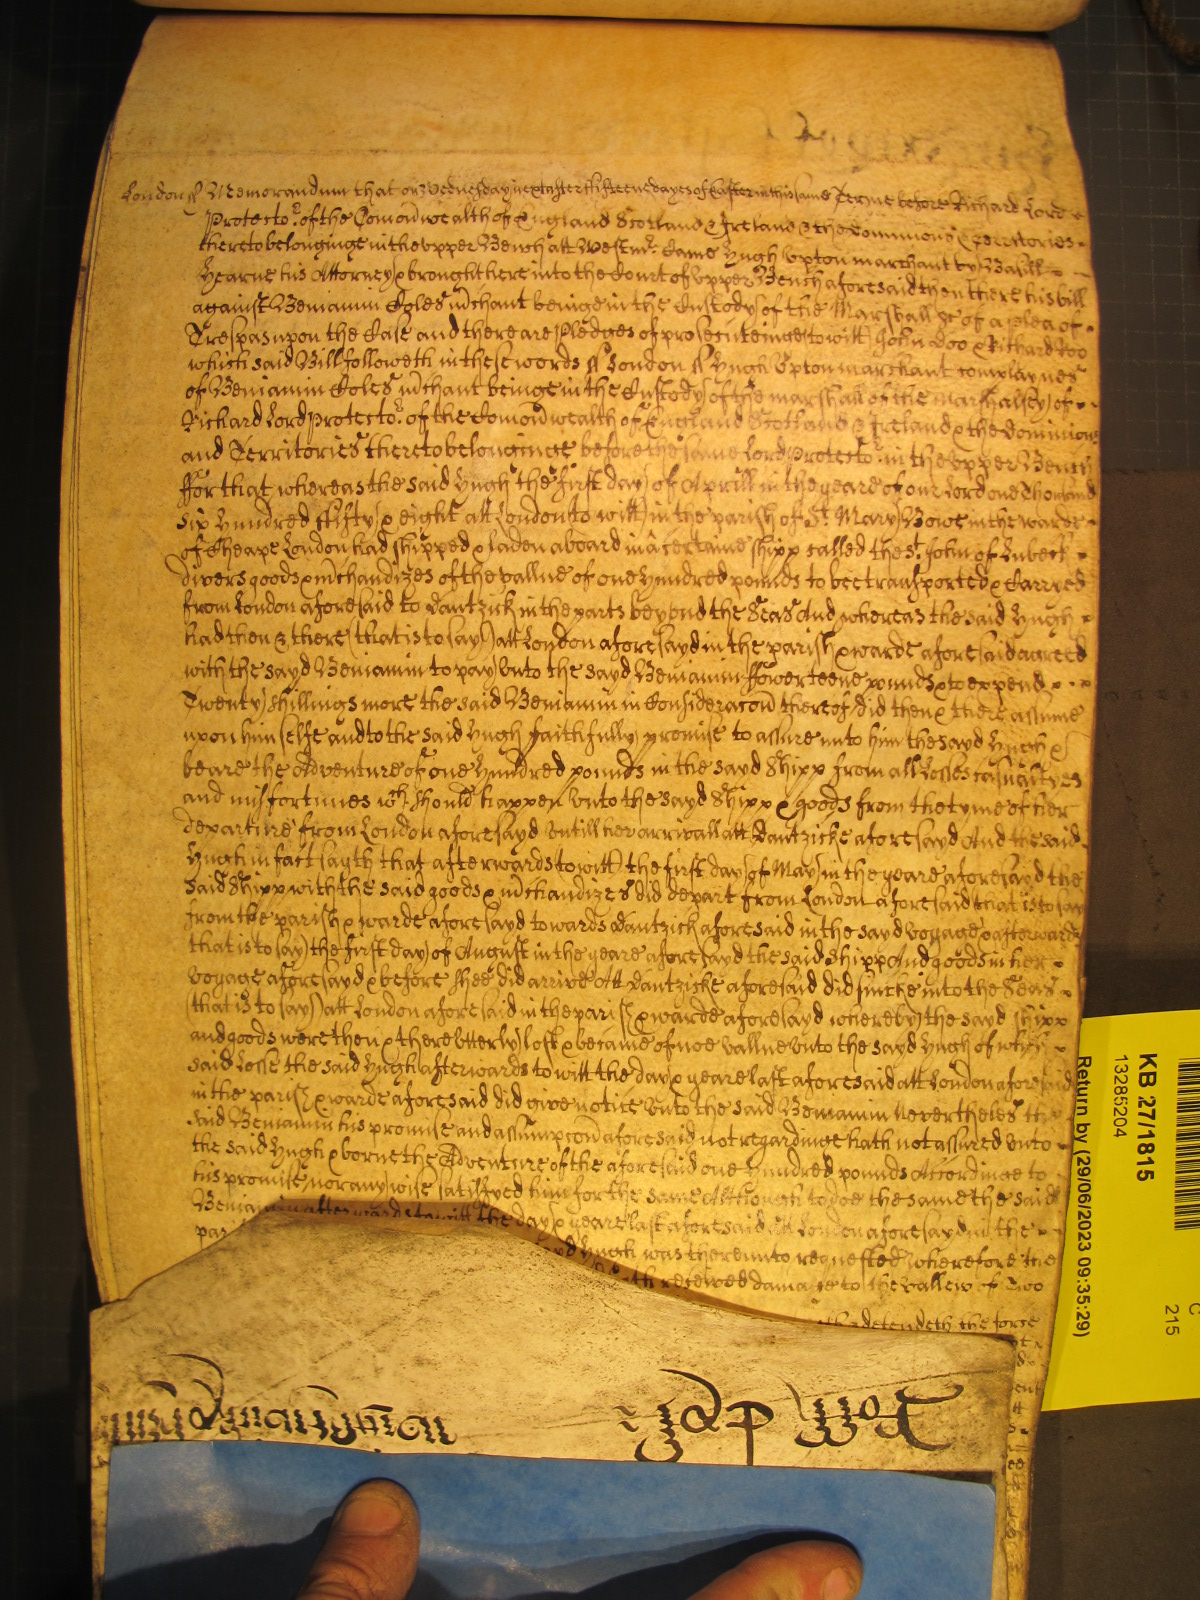 London ss Memorandum that on Wednesday next after fifteene dayes of Easter in this same Terme before Richard Lord
Protector of the Comonwealth of England Scotland & Ireland & the dominions & Territories
thereto belonginge in the upper Bench att Westmr. Came Hugh Upton marchant by Basill
Hearne his Attorney & brought here into the Court of Upper Bench aforesaid then there his bill
against Beniamin Coles mchant beinge in the Custody of the Marshall &c of a plea of
Trespas upon the Case and there are Pledges of prosecuteinge to witt John Doo & Richard Roo
which said Bill followeth in these words ss London ss Hugh Upton marchant complaynes
of Beniamin Coles mchant beinge in the Custody of the marshall of the marshalsey of
Richard Lord Protector of the Comonwealth of England Scotland & Ireland & the dominions
and Territories thereto belonginge before the same Lord Protector in the upper Bench
ffor that whereas the said Hugh the first day of Aprill in the yeare of our Lord one Thousand
six Hundred fifty & eight att London to witt in the parish of St. Mary Bowe in the warde
of Cheape London had shipped & laden aboard in a certaine shipp called the St. John of Lubeck
divers goods & mchandizes of the vallue of one Hundred pounds to bee transported & Carried
from London aforesaid to dantzick in the parts beyond the Seas And whereas the said Hugh
had then & there (that is to say) att London aforesayd in the parish & warde aforesaid agreed
with the sayd Beniamin to pay unto the sayd Beniamin ffowerteene pounds & to expend
Twenty shillings more the said Beniamin in Consideracon thereof did then & there assume
upon himselfe and to the said Hugh faithfully promise to assure unto him the sayd Hugh &
beare the Adventure of one Hundred pounds in the sayd Shipp from all Losses casualtyes
and misfortunes wch should happen unto the sayd Shipp & goods from the tyme of her
departure from London aforesayd untill her arrivall att dantzicke aforesayd And the said
Hugh in fact sayth that afterwards to witt the first day of May in the yeare aforesayd the
said Shipp with the said goods & mchandizes did depart from London aforesaid that is to say
from the parish & warde aforesayd towards dantzick aforesaid in the sayd voyage & afterwards
that is to say the first day of August in the yeare aforesayd the said Shipp And goods in her
voyage aforesayd & before shee did arrive att dantzicke aforesaid did sincke into the Seas
(that is to say) att London aforesaid in the parish & warde aforesayd whereby the sayd shipp
and goods were then & there utterly lost & became of noe vallue unto the sayd Hugh of which
said Losse the said Hugh afterwards to witt the day & yeare last aforesaid att London aforesaid
in the parish & warde aforesaid did give notice unto the said Beniamin Nevertheles the
said Beniamin his promise and assumpcon aforesaid not regardinge hath not assured unto
the said Hugh & borne the Adventure of the aforesaid one Hundred pounds Accordinge to
his promise nor any wise satisfyed him for the same Although to doe the same the said
Beniamin afterwards to witt the day & yeare last aforesaid att London aforesayd in the
par sayd Hugh was thereunto requested wherefore the
hath received damage to the vallew of Two
defendeth the force
KB 27/1815
13285204
Return by (29/06/2023 09:35:29)
C
215